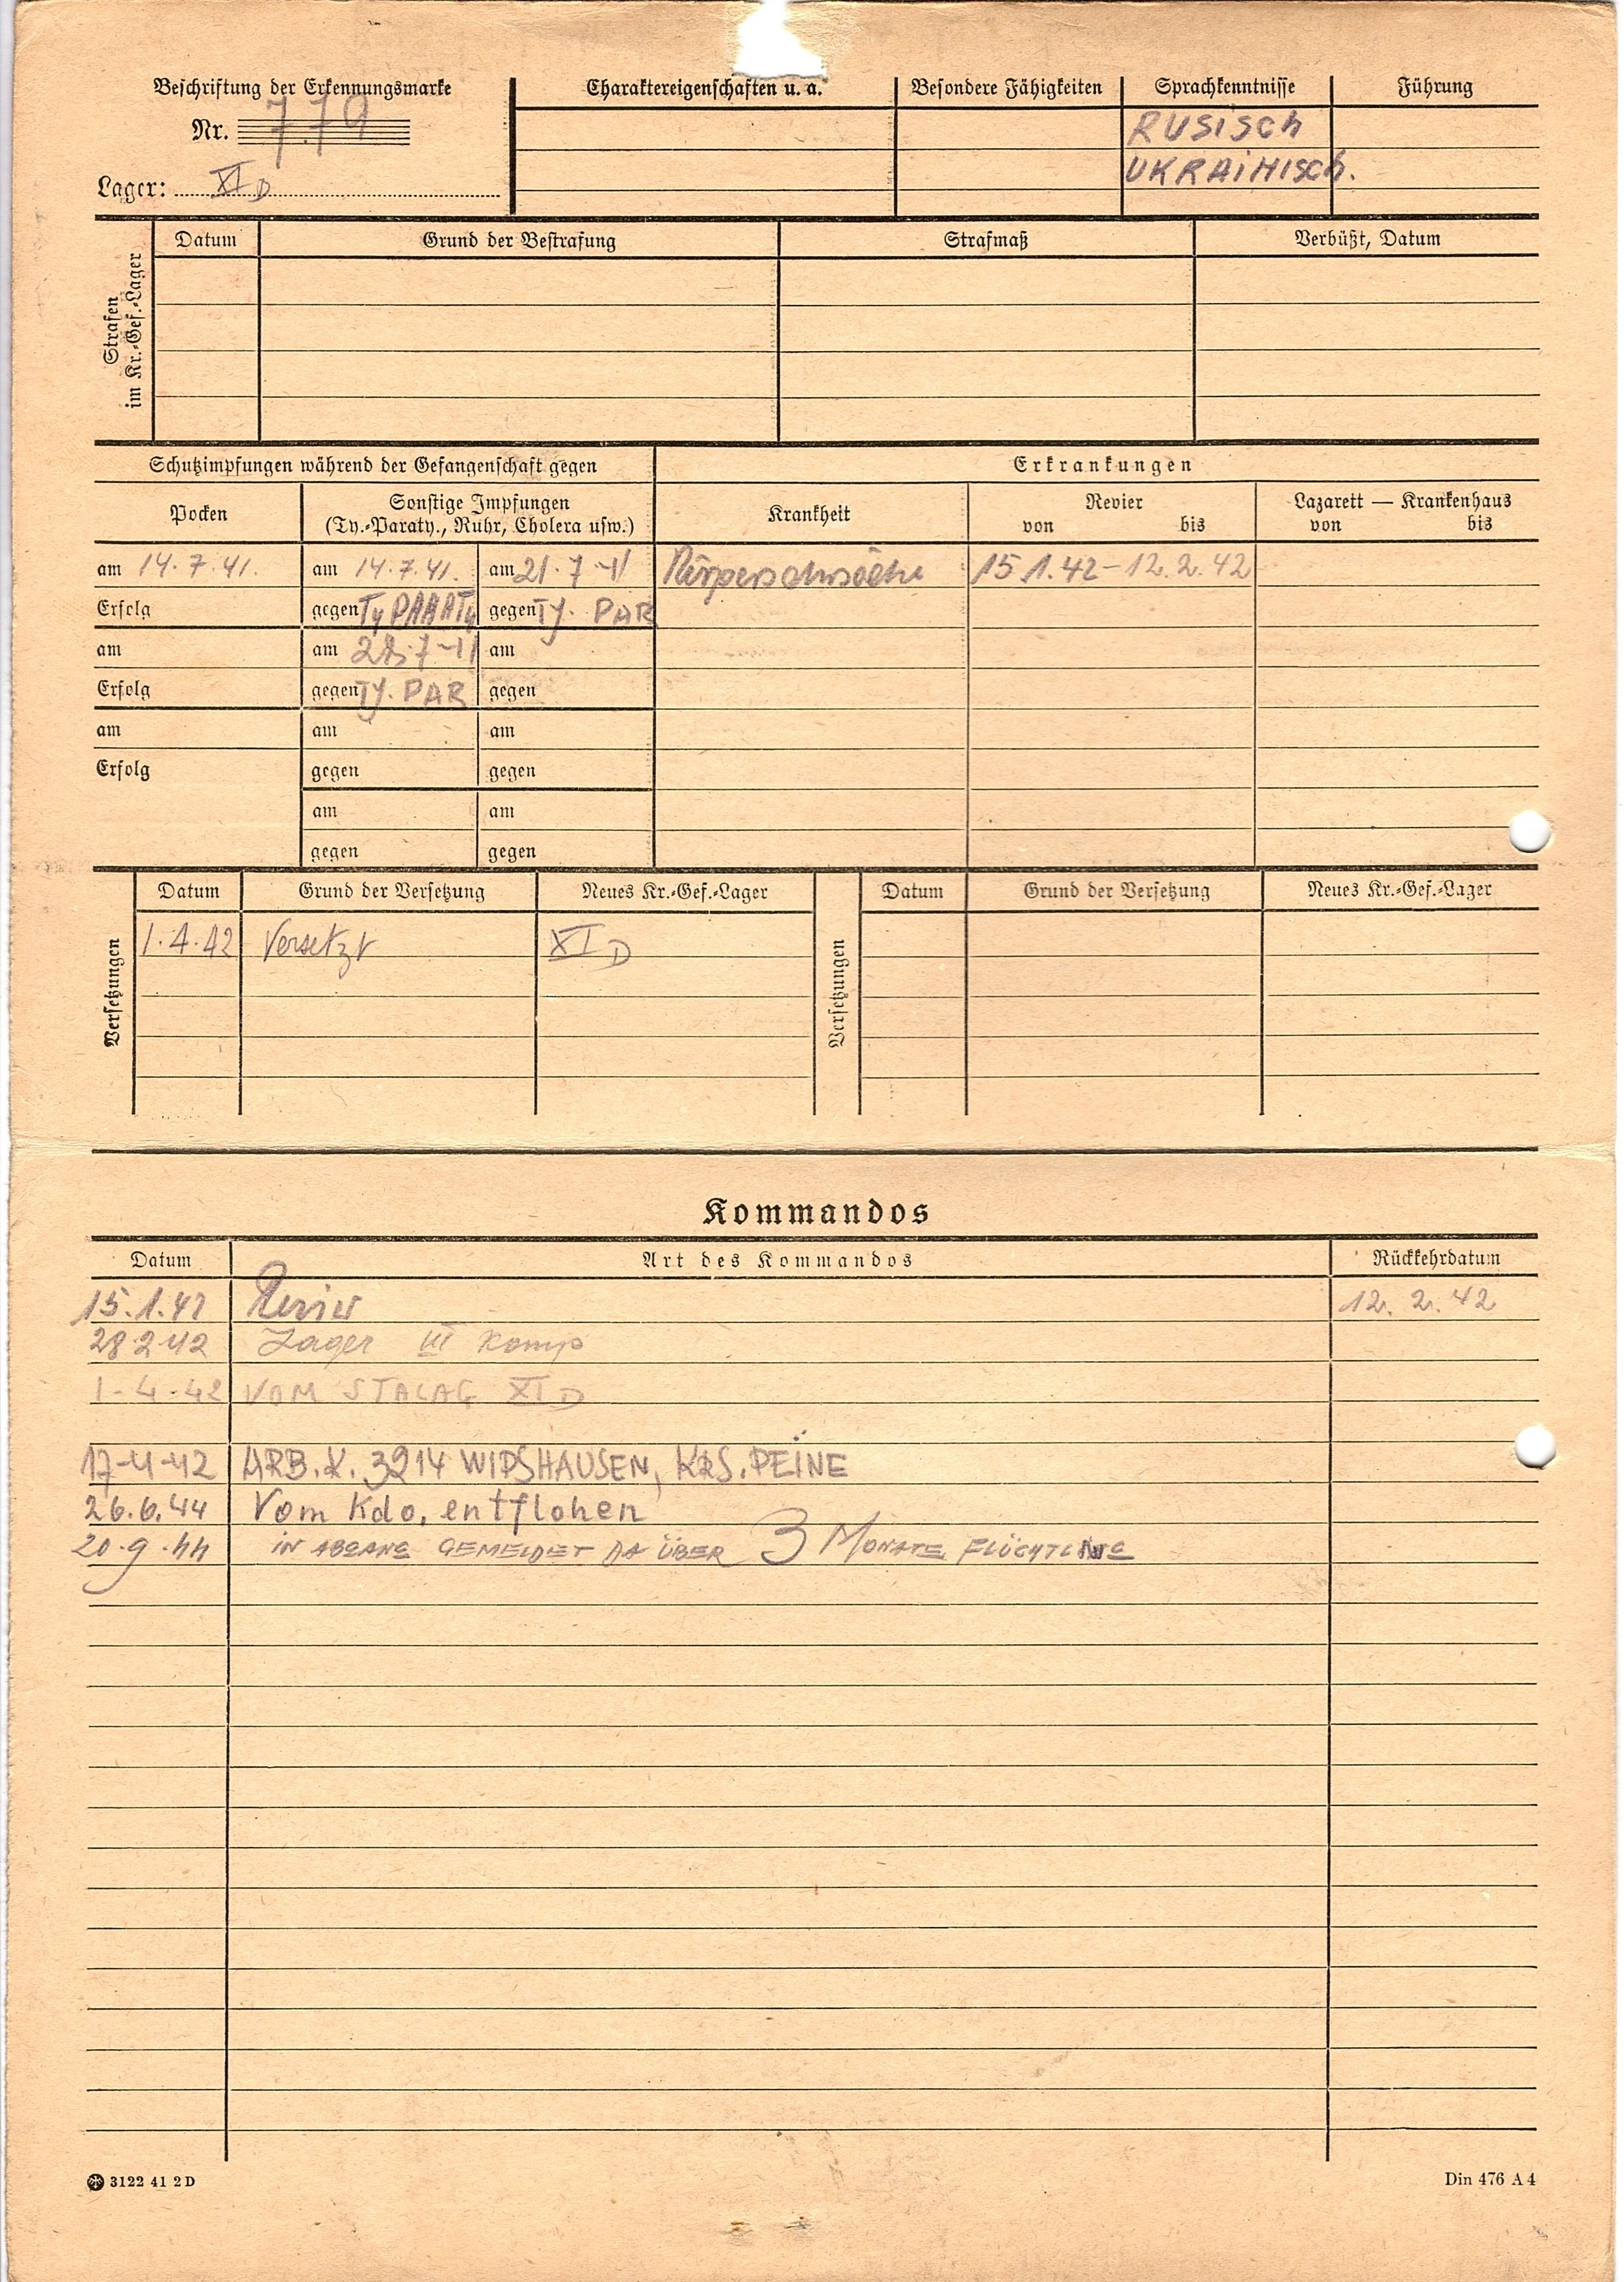 Beschriftung der Erkennungsmarke
Nr. 779
Lager: XI D
Charaktereigenschaften u. a.
Besondere Fähigkeiten
Sprachkenntnisse
RUSISCH
UKRAINISCH.
Führung
Strafen
im Kr.-Gef.-Lager
Datum Grund der Bestrafung Strafmaß Verbüßt, Datum
Schutzimpfungen während der Gefangenschaft gegen
Erkrankungen
Pocken
Sonstige Impfungen
(Ty.-Paraty., Ruhr, Cholera usw.)
Krankheit
Revier
von bis
Lazarett — Krankenhaus
von bis
am 14.7.41. am 14.7.41. am 21.7-41 Körperschwäche 15 1.42-12.2.42
Erfolg gegen Ty PARATy gegen Ty. PAR
am am 28.7-41 am
Erfolg gegen Ty. PAR gegen
am am am
Erfolg gegen gegen
am am
gegen gegen
Versetzungen
Datum Grund der Versetzung Neues Kr.-Gef.-Lager
1.4.42 Versetzt XI D
Versetzungen
Datum Grund der Versetzung Neues Kr.-Gef.-Lager
Kommandos
Datum Art des Kommandos Rückkehrdatum
15.1.42 Revier 12. 2. 42
28 2 42 Lager III Komp
1-4-42 VOM STALAG XI D
17-4-42 ARB.K. 3214 WIPSHAUSEN, KRS. PEINE
26.6.44 Vom Kdo. entflohen
20.9.44 IN ABGANG GEMELDET DA ÜBER 3 MONATE FLÜCHTLING
3122 41 2 D
Din 476 A 4